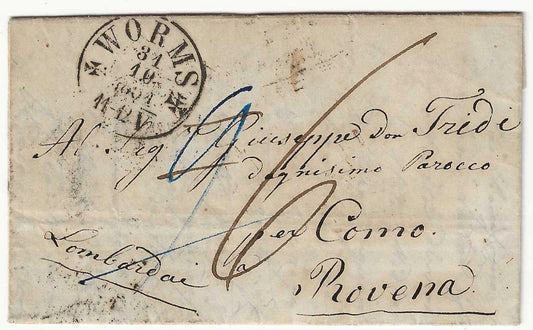 WORMS
31
10
1851
11-12 V
Al Sig Giuseppe Don Tridi
degnisimo Parocco
per Como.
Lombardai a
Rovena